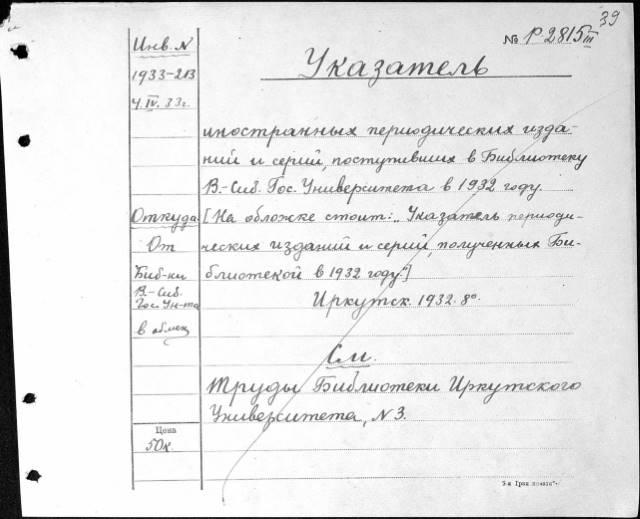 39
№ Р 2815 III
Указатель
Инв. N
1933-213
4.IV.33г.
иностранных периодических изда-
ний и серий, поступивших в Библиотеку
В.-Сиб. Гос. Университета в 1932 году.
[На обложке стоит: „Указатель периоди-
ческих изданий и серий, полученных Би-
блиотекой в 1932 году."]
Иркутск. 1932. 8°.
Откуда
От
Биб-ки
В.-Сиб.
Гос. Ун-та
в обмен
См.
Труды Библиотеки Иркутского
Университета, N 3.
Цена
50к.